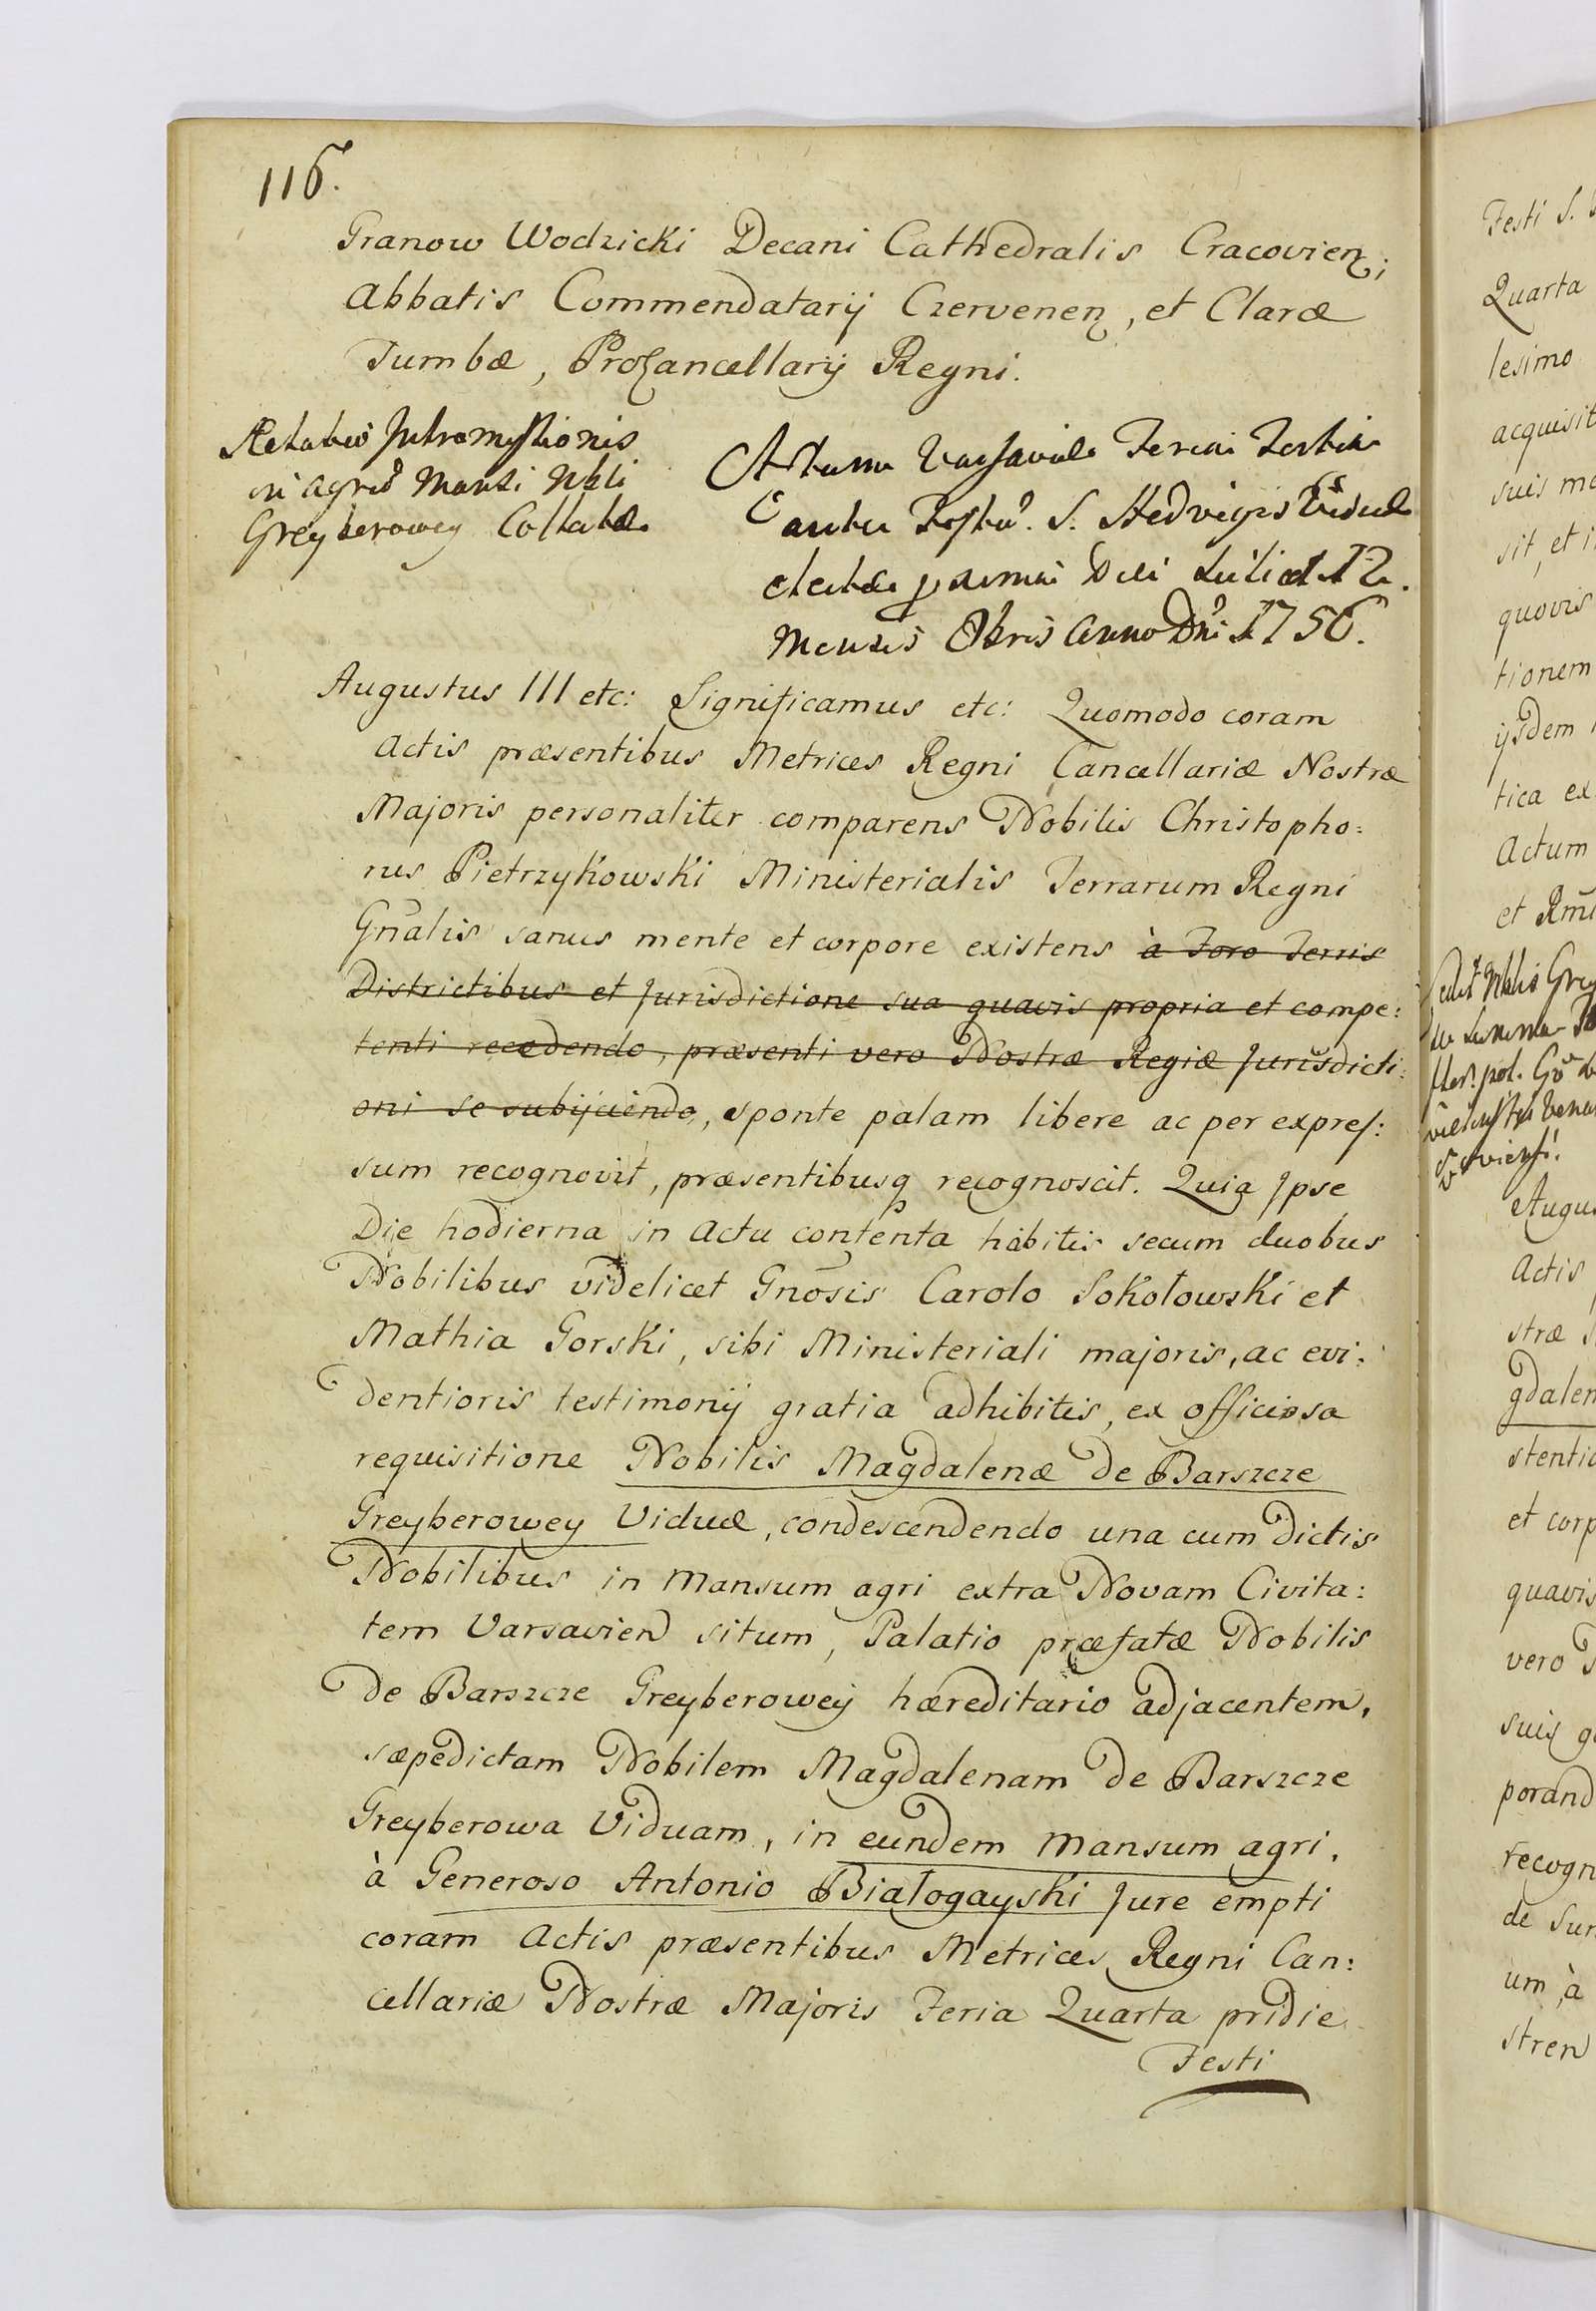 116.
Granow Wodzicki Decani Cathedralis Cracovien;
Abbatis Commendatarij Czervenen, et Claræ
Tumbæ, ProCancellarij Regni.
Relatio Intromissionis
in agrũ Mansi Nbli
Greyberowey Collatæ
Actum Varsaviæ Feria Tertia
ante Festũ S. Hedvigis Viduæ
electæ proxima Die scilicet 12
Mensis Obris Anno Dni 1756.
Augustus III etc: Significamus etc: Quomodo coram
Actis præsentibus Metrices Regni Cancellariæ Nostræ
Majoris personaliter comparens Nobilis Christopho:
rus Pietrzykowski Ministerialis Terrarum Regni
Gnãlis sanus mente et corpore existens à Foro Terris
Districtibus et Jurisdictione sua quavis propria et compe:
tenti recedendo, præsenti vero Nostræ Regiæ Jurisdicti:
oni se subijciendo, sponte palam libere ac per expres:
sum recognovit, præsentibusq recognoscit. Quia Ipse
Die hodierna in Actu contenta habitis secum duobus
Nobilibus videlicet Gnõsis Carolo Sokołowski et
Mathia Gorski, sibi Ministeriali majoris, ac evi:
dentioris testimonij gratia adhibitis, ex officiosa
requisitione Nobilis Magdalenæ de Barszcze
Greyberowey Viduæ, condescendendo una cum dictis
Nobilibus in Mansum agri extra Novam Civita:
tem Varsavien situm, Palatio præfatæ Nobilis
de Barszcze Greyberowey hæreditario adjacentem,
sæpedictam Nobilem Magdalenam de Barszcze
Greyberowa Viduam, in eundem Mansum agri,
à Generoso Antonio Białogayski Jure empti
coram Actis præsentibus Metrices Regni Can:
cellariæ Nostræ Majoris Feria Quarta pridie
Festi
Festi S.
Quarta
lesimo
acquisit
suis
sit, et
quovis
tionem
ijsdem
tica ex
Actum
et
Augu
Actis
stræ
gdalen
stentic
et corp
quavis
vero
suis
porand
recogn
de Sum
um, à
stren